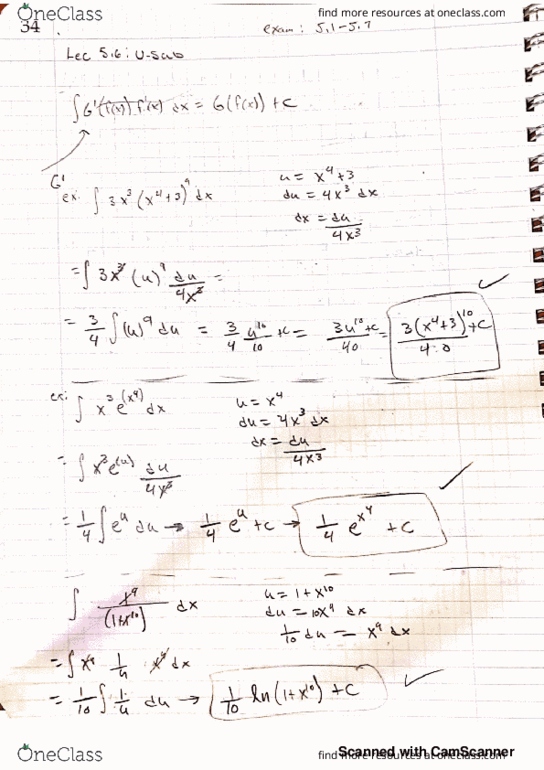 OneClass
find more resources at oneclass.com
34
exam: 5.1-5.7
Lec 5.6: U-Sub
∫G'(f(x)) f'(x) dx = G(f(x)) + C
G'
ex: ∫ 3x³(x⁴+3)⁹ dx
u = x⁴+3
du = 4x³ dx
dx = du/4x³
= ∫ 3x³ (u)⁹ du/4x³ =
= 3/4 ∫(u)⁹ du = 3/4 u¹⁰/10 + C = 3u¹⁰/40 + C = 3(x⁴+3)¹⁰/40 + C
ex: ∫ x³e^(x⁴) dx
u = x⁴
du = 4x³ dx
dx = du/4x³
= ∫ x³e^(u) du/4x³
= 1/4 ∫ e^u du → 1/4 e^u + C → 1/4 e^x⁴ + C
∫ x⁹/(1+x¹⁰) dx
u = 1+x¹⁰
du = 10x⁹ dx
1/10 du = x⁹ dx
= ∫ x⁹ 1/u x⁹ dx
= 1/10 ∫ 1/u du → 1/10 ln(1+x¹⁰) + C
OneClass
find more resources at oneclass.com
Scanned with CamScanner